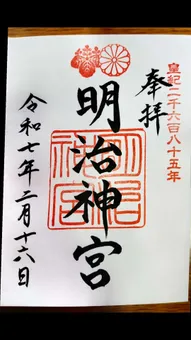 皇紀二千六百八十五年
奉拝
明治神宮
令和七年二月十六日